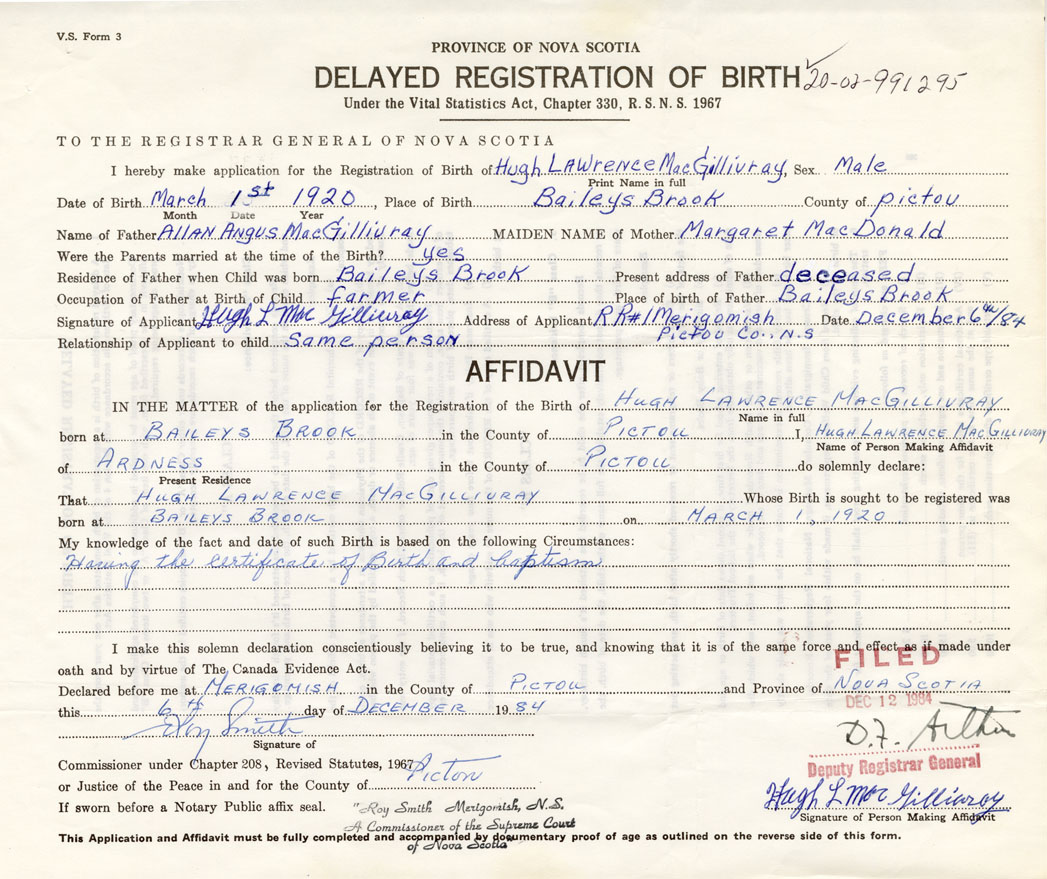 V.S. Form 3
PROVINCE OF NOVA SCOTIA
DELAYED REGISTRATION OF BIRTH 20-02-991295
Under the Vital Statistics Act, Chapter 330, R.S.N.S. 1967
TO THE REGISTRAR GENERAL OF NOVA SCOTIA
I hereby make application for the Registration of Birth of Hugh LAWrence MacGillivray, Sex Male
Print Name in full
Date of Birth March 1st 1920, Place of Birth Baileys Brook County of pictou
Month Date Year
Name of Father Allan Angus MacGillivray MAIDEN NAME of Mother Margaret MacDonald
Were the Parents married at the time of the Birth? yes
Residence of Father when Child was born Baileys Brook Present address of Father deceased
Occupation of Father at Birth of Child farmer Place of birth of Father Baileys Brook
Signature of Applicant Hugh L Mac Gillivray Address of Applicant RR#1 Merigomish Date December 6th/84
Pictou Co., N.S
Relationship of Applicant to child Same person
AFFIDAVIT
IN THE MATTER of the application for the Registration of the Birth of HUGH LAWRENCE MACGILLIVRAY
Name in full
born at BAILEYS BROOK in the County of PICTOU I, HUGH LAWRENCE MACGILLIVRAY
Name of Person Making Affidavit
of ARDNESS in the County of PICTOU do solemnly declare:
Present Residence
That HUGH LAWRENCE MACGILLIVRAY Whose Birth is sought to be registered was
born at BAILEYS BROOK on MARCH 1, 1920
My knowledge of the fact and date of such Birth is based on the following Circumstances:
Having the Certificate of Birth and baptism
I make this solemn declaration conscientiously believing it to be true, and knowing that it is of the same force and effect as if made under
oath and by virtue of The Canada Evidence Act.
FILED
Declared before me at MERIGOMISH in the County of PICTOU and Province of NOVA SCOTIA
DEC 12 1984
this 6th day of DECEMBER 1984
Roy Smith
D.F. Arthur
Signature of
Deputy Registrar General
Commissioner under Chapter 208, Revised Statutes, 1967
or Justice of the Peace in and for the County of Pictou
Hugh L Mac Gillivray
If sworn before a Notary Public affix seal. "Roy Smith Merigomish, N.S.
Signature of Person Making Affidavit
A Commissioner of the Supreme Court
This Application and Affidavit must be fully completed and accompanied by documentary proof of age as outlined on the reverse side of this form.
of Nova Scotia"